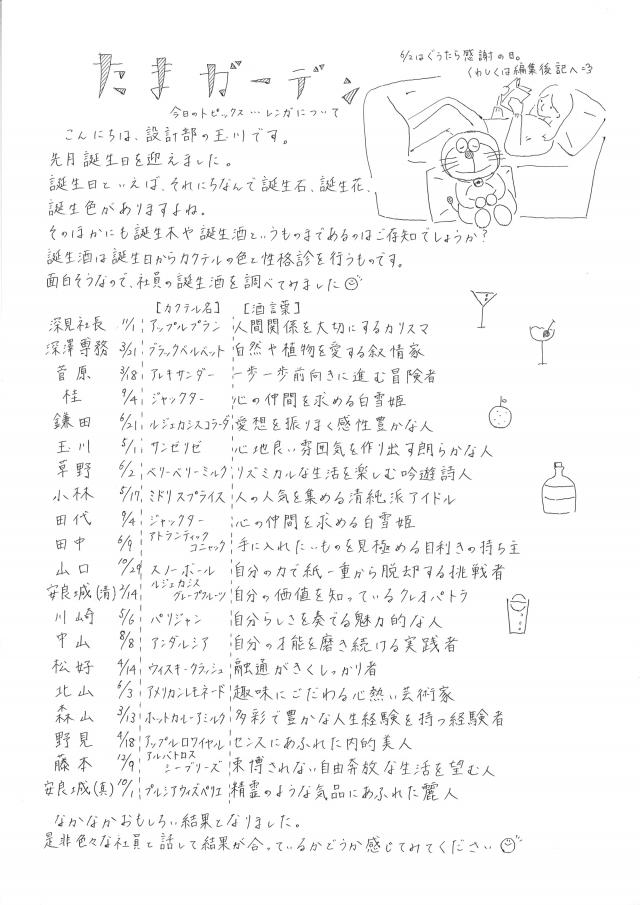 6/2はぐうたら感謝の日。
くわしくは編集後記へ=3
たまガーデン
今日のトピックス…レンガについて
こんにちは、設計部の玉川です。
先月誕生日を迎えました。
誕生日といえば、それにちなんで誕生石、誕生花、
誕生色がありますよね。
そのほかにも誕生木や誕生酒というものまであるのはご存知でしょうか?
誕生酒は誕生日からカクテルの色と性格診を行うものです。
面白そうなので、社員の誕生酒を調べてみました
[カクテル名] [酒言葉]
深見社長 11/1 アップルプラン 人間関係を大切にするカリスマ
深澤専務 3/31 ブラックベルベット 自然や植物を愛する叙情家
菅原 3/18 アレキサンダー 一歩一歩前向きに進む冒険者
桂 9/4 ジャックター 心の仲間を求める白雪姫
鎌田 6/21 ルジェカシスコラーダ 愛想を振りまく感性豊かな人
玉川 5/1 サンゼリゼ 心地良い雰囲気を作り出す朗らかな人
草野 6/2 ベリーベリーミルク リズミカルな生活を楽しむ吟遊詩人
小林 5/17 ミドリスプライス 人の人気を集める清純派アイドル
田代 9/4 ジャックター 心の仲間を求める白雪姫
田中 6/9 アトランティックコニャック 手に入れたいものを見極める目利きの持ち主
山口 10/29 スノーボール 自分の力で紙一重から脱却する挑戦者
安良城(清) 2/14 ルジェカシスグレープフルーツ 自分の価値を知っているクレオパトラ
川崎 5/6 パリジャン 自分らしさを奏でる魅力的な人
中山 8/8 アンダルシア 自分の才能を磨き続ける実践者
松好 4/14 ウィスキークラッシュ 融通がきくしっかり者
北山 6/3 アメリカンレモネード 趣味にこだわる心熱い芸術家
森山 3/13 ホットカルーアミルク 多彩で豊かな人生経験を持つ経験者
野見 4/18 アップルロワイヤル センスにあふれた内的美人
藤本 12/9 アルバトロスシーブリーズ 束博されない自由奔放な生活を望む人
安良城(真) 10/1 プルシアウィズペリエ 精霊のような気品にあふれた麗人
なかなかおもしろい結果となりました。
是非色々な社員と話して結果が合っているかどうか感じてみてください